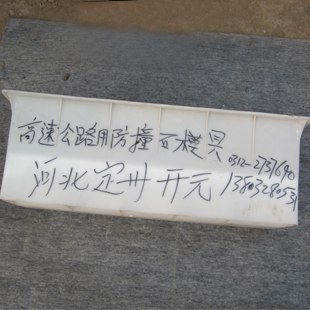 高速公路用防撞瓦模具
0312-2731690
河北定州开元
13803280531